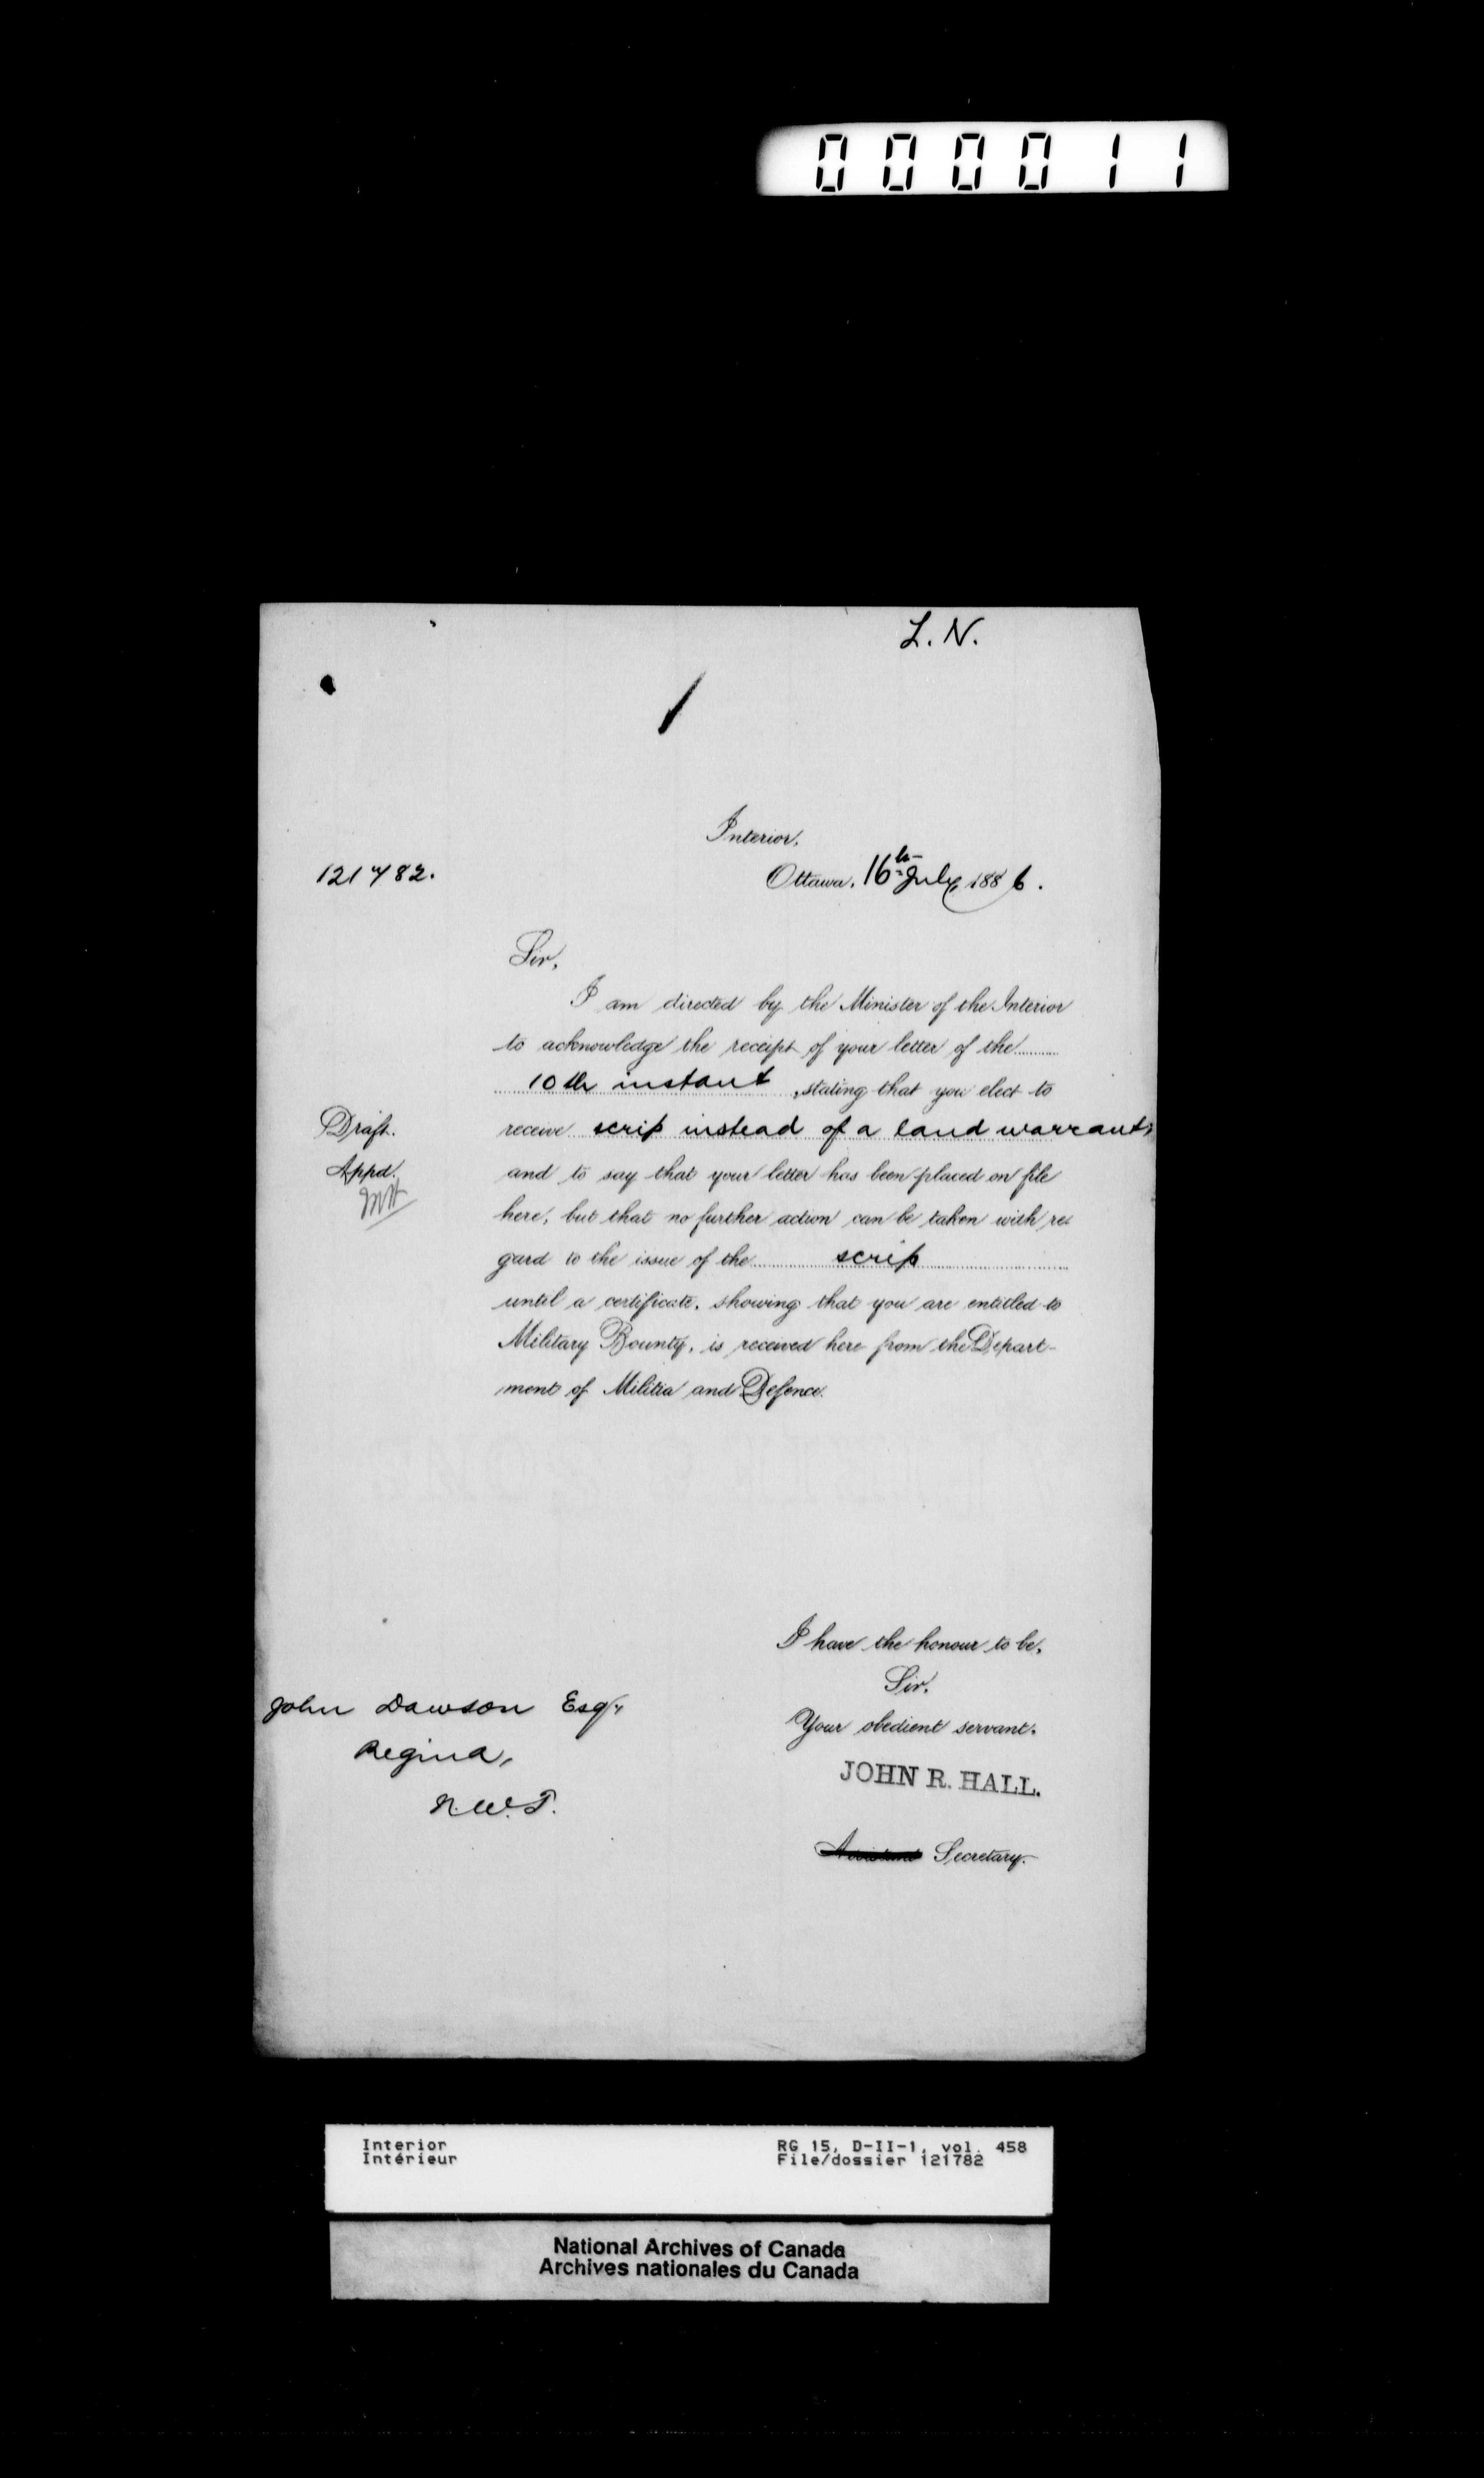 000011
L. N.
Interior,
121782.
Ottawa, 16th July, 1886.
Sir,
I am directed by the Minister of the Interior
to acknowledge the receipt of your letter of the
10th instant, stating that you elect to
Draft.
receive scrip instead of a land warrant,
Appd.
and to say that your letter has been placed on file
here, but that no further action can be taken with re-
gard to the issue of the scrip
until a certificate, showing that you are entitled to
Military Bounty, is received here from the Depart-
ment of Militia and Defence.
I have the honour to be,
Sir,
John Dawson Esq.,
Your obedient servant.
Regina,
JOHN R. HALL.
N.W.T.
Assistant Secretary.
Interior
Intérieur
RG 15, D-II-1, vol. 458
File/dossier 121782
National Archives of Canada
Archives nationales du Canada